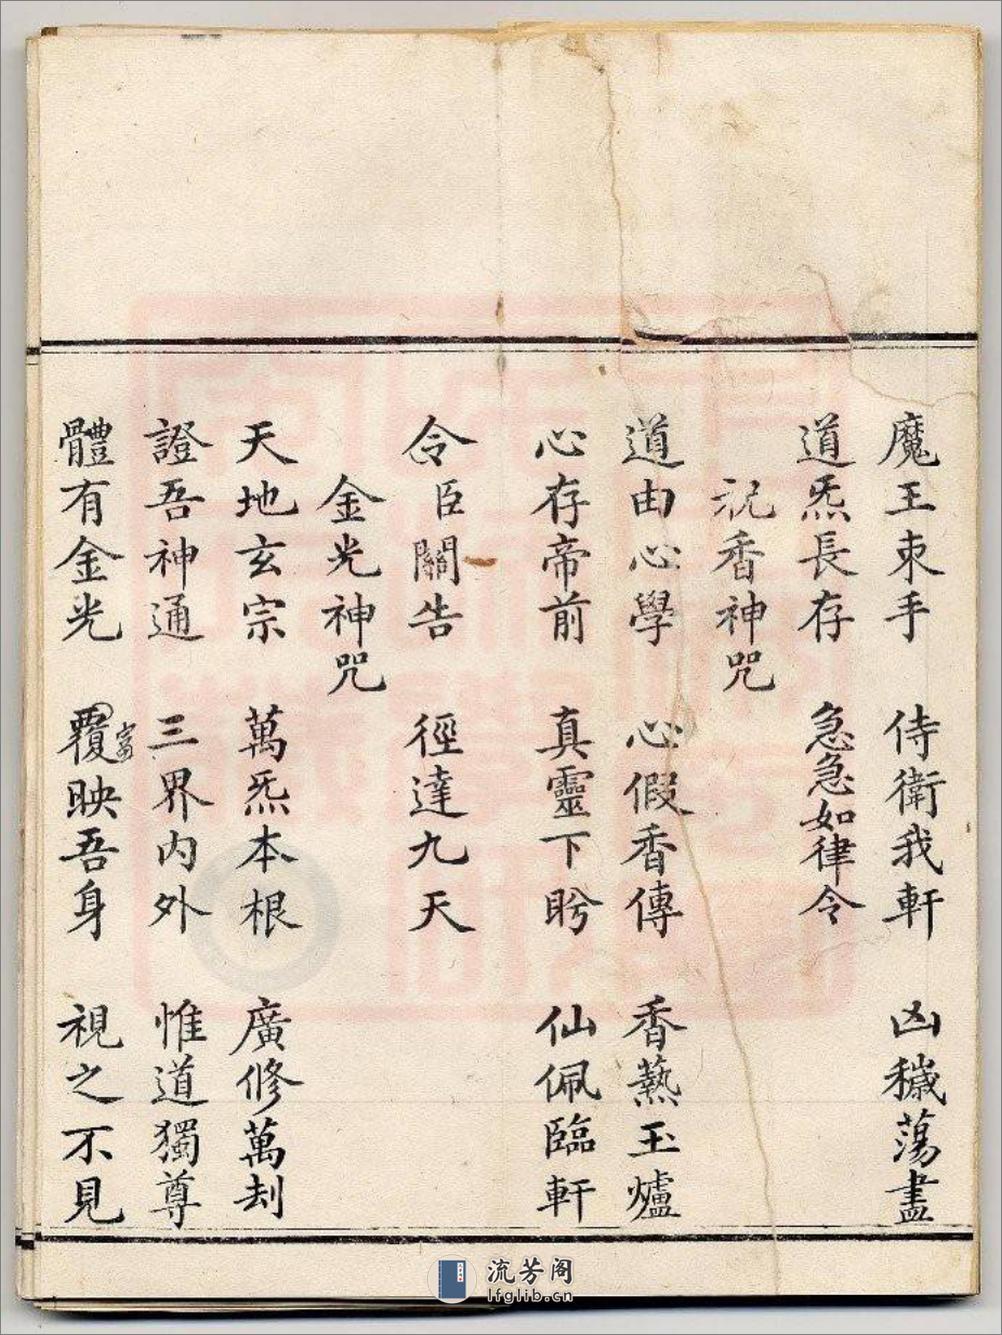 魔王束手 侍衛我軒 凶穢蕩盡
道炁長存 急急如律令
祝香神咒
道由心學 心假香傳 香爇玉爐
心存帝前 真靈下盻 仙佩臨軒
令臣關告 徑達九天
金光神咒
天地玄宗 萬炁本根 廣修萬刦
證吾神通 三界內外 惟道獨尊
體有金光 覆映吾身 視之不見
流芳阁
lfglib.cn